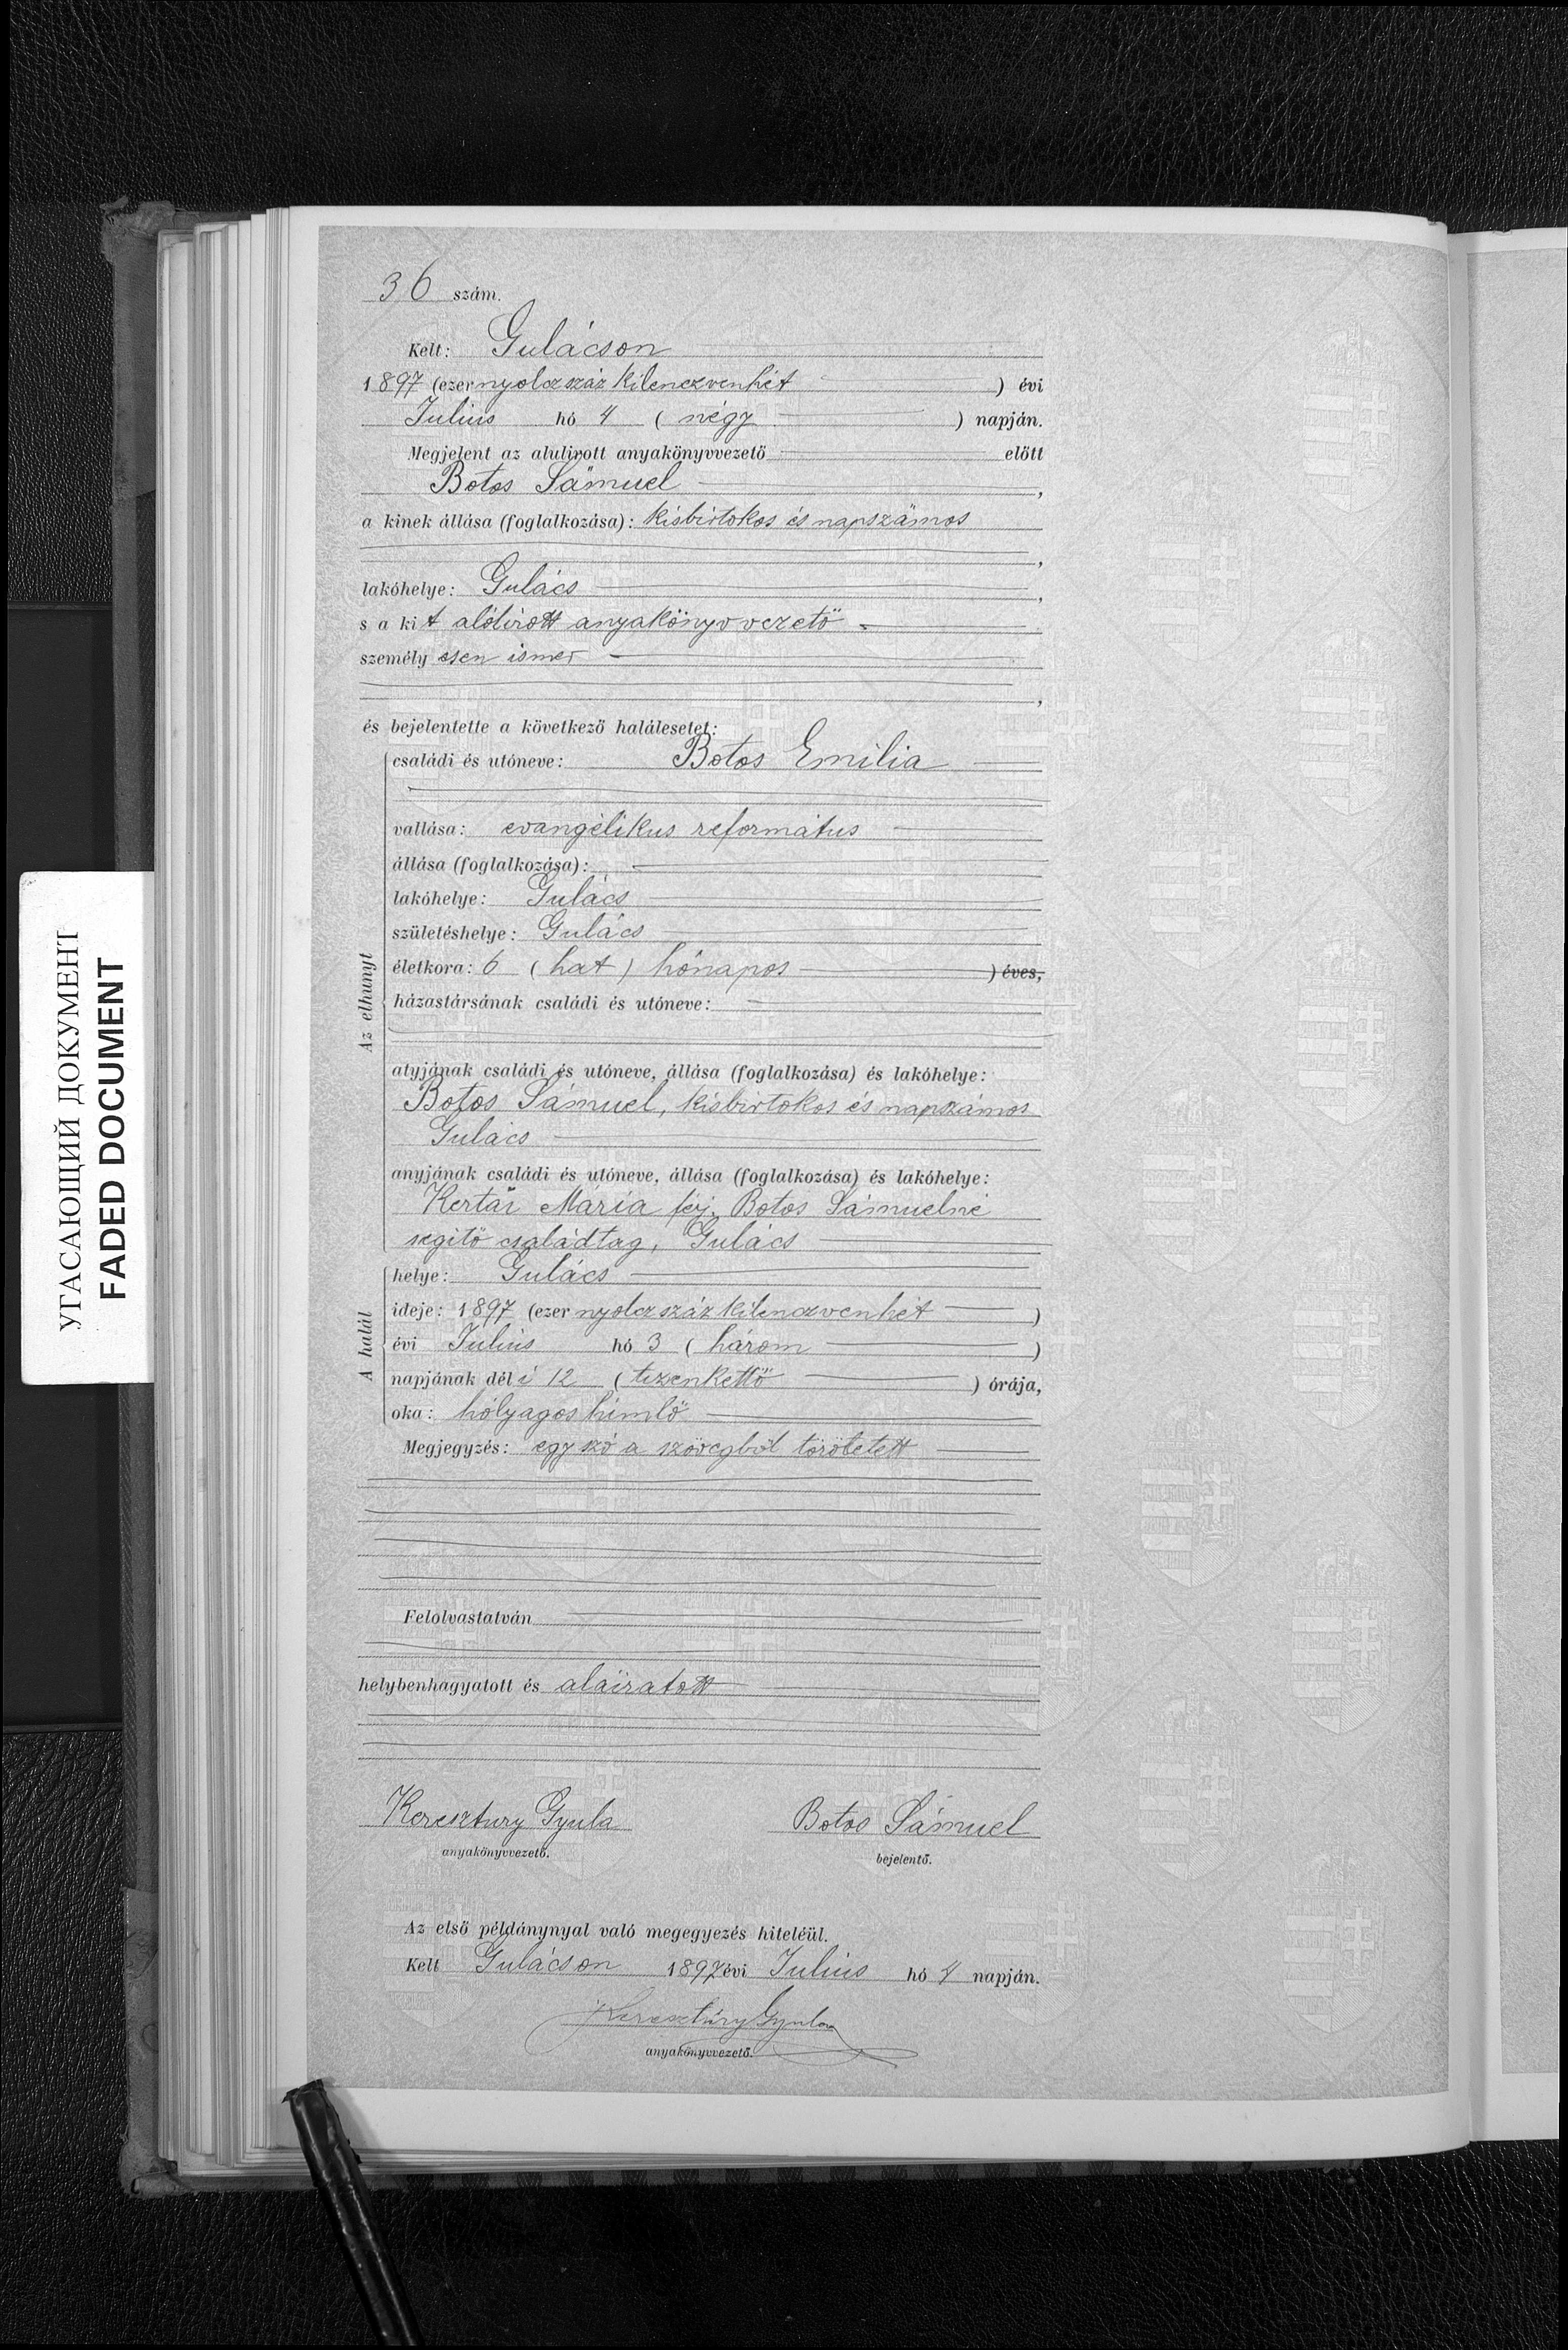 36 szám.
Kelt: Gulácson
1897 (ezer nyolczszáz kilenczvenhét ) évi
Julius hó 4 ( négy ) napján.
Megjelent az alulirott anyakönyvvezető előtt
Botos Sámuel ,
a kinek állása (foglalkozása): kisbirtokos és napszámos
,
lakóhelye: Gulács ,
s a kit alólirott anyakönyvvezető
személyesen ismer
,
és bejelentette a következő halálesetet:
Az elhunyt
családi és utóneve: Botos Emilia
vallása: evangélikus református
állása (foglalkozása):
lakóhelye: Gulács
születéshelye: Gulács
életkora: 6 (hat) hónapos ) éves,
házastársának családi és utóneve:
atyjának családi és utóneve, állása (foglalkozása) és lakóhelye:
Botos Sámuel, kisbirtokos és napszámos
Gulács
anyjának családi és utóneve, állása (foglalkozása) és lakóhelye:
Mária férj. Botos Sámuelné
segitő családtag, Gulács
A halál
helye: Gulács
ideje: 1897 (ezer nyolczszáz kilenczvenhét )
évi Julius hó 3 ( három )
napjának déli 12 ( tizenkettő ) órája,
oka: hólyagos himlő
Megjegyzés: egy szó a szövegből töröltetett
Felolvastatván
helybenhagyatott és aláiratott
Keresztury Gyula Botos Sámuel
anyakönyvvezető. bejelentő.
Az első példánynyal való megegyezés hiteléül.
Kelt Gulácson 1897 évi Julius hó 4 napján.
Keresztúry Gyula
anyakönyvvezető.
УГАСАЮЩИЙ ДОКУМЕНТ
FADED DOCUMENT